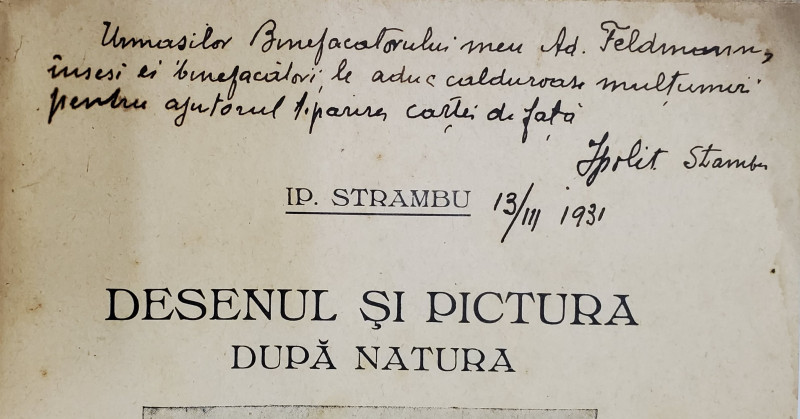 Urmasilor Binefacatorului meu Ad. Feldmann,
însesi ei binefăcători, le aduc calduroase mulțumiri
pentru ajutorul tiparirei cartei de față
Ipolit Strambu
IP. STRAMBU 13/III 1931
DESENUL ȘI PICTURA
DUPĂ NATURA